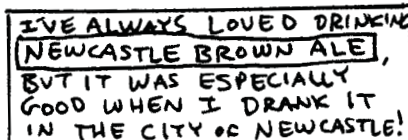 I'VE ALWAYS LOVED DRINKING
NEWCASTLE BROWN ALE,
BUT IT WAS ESPECIALLY
GOOD WHEN I DRANK IT
IN THE CITY OF NEWCASTLE!